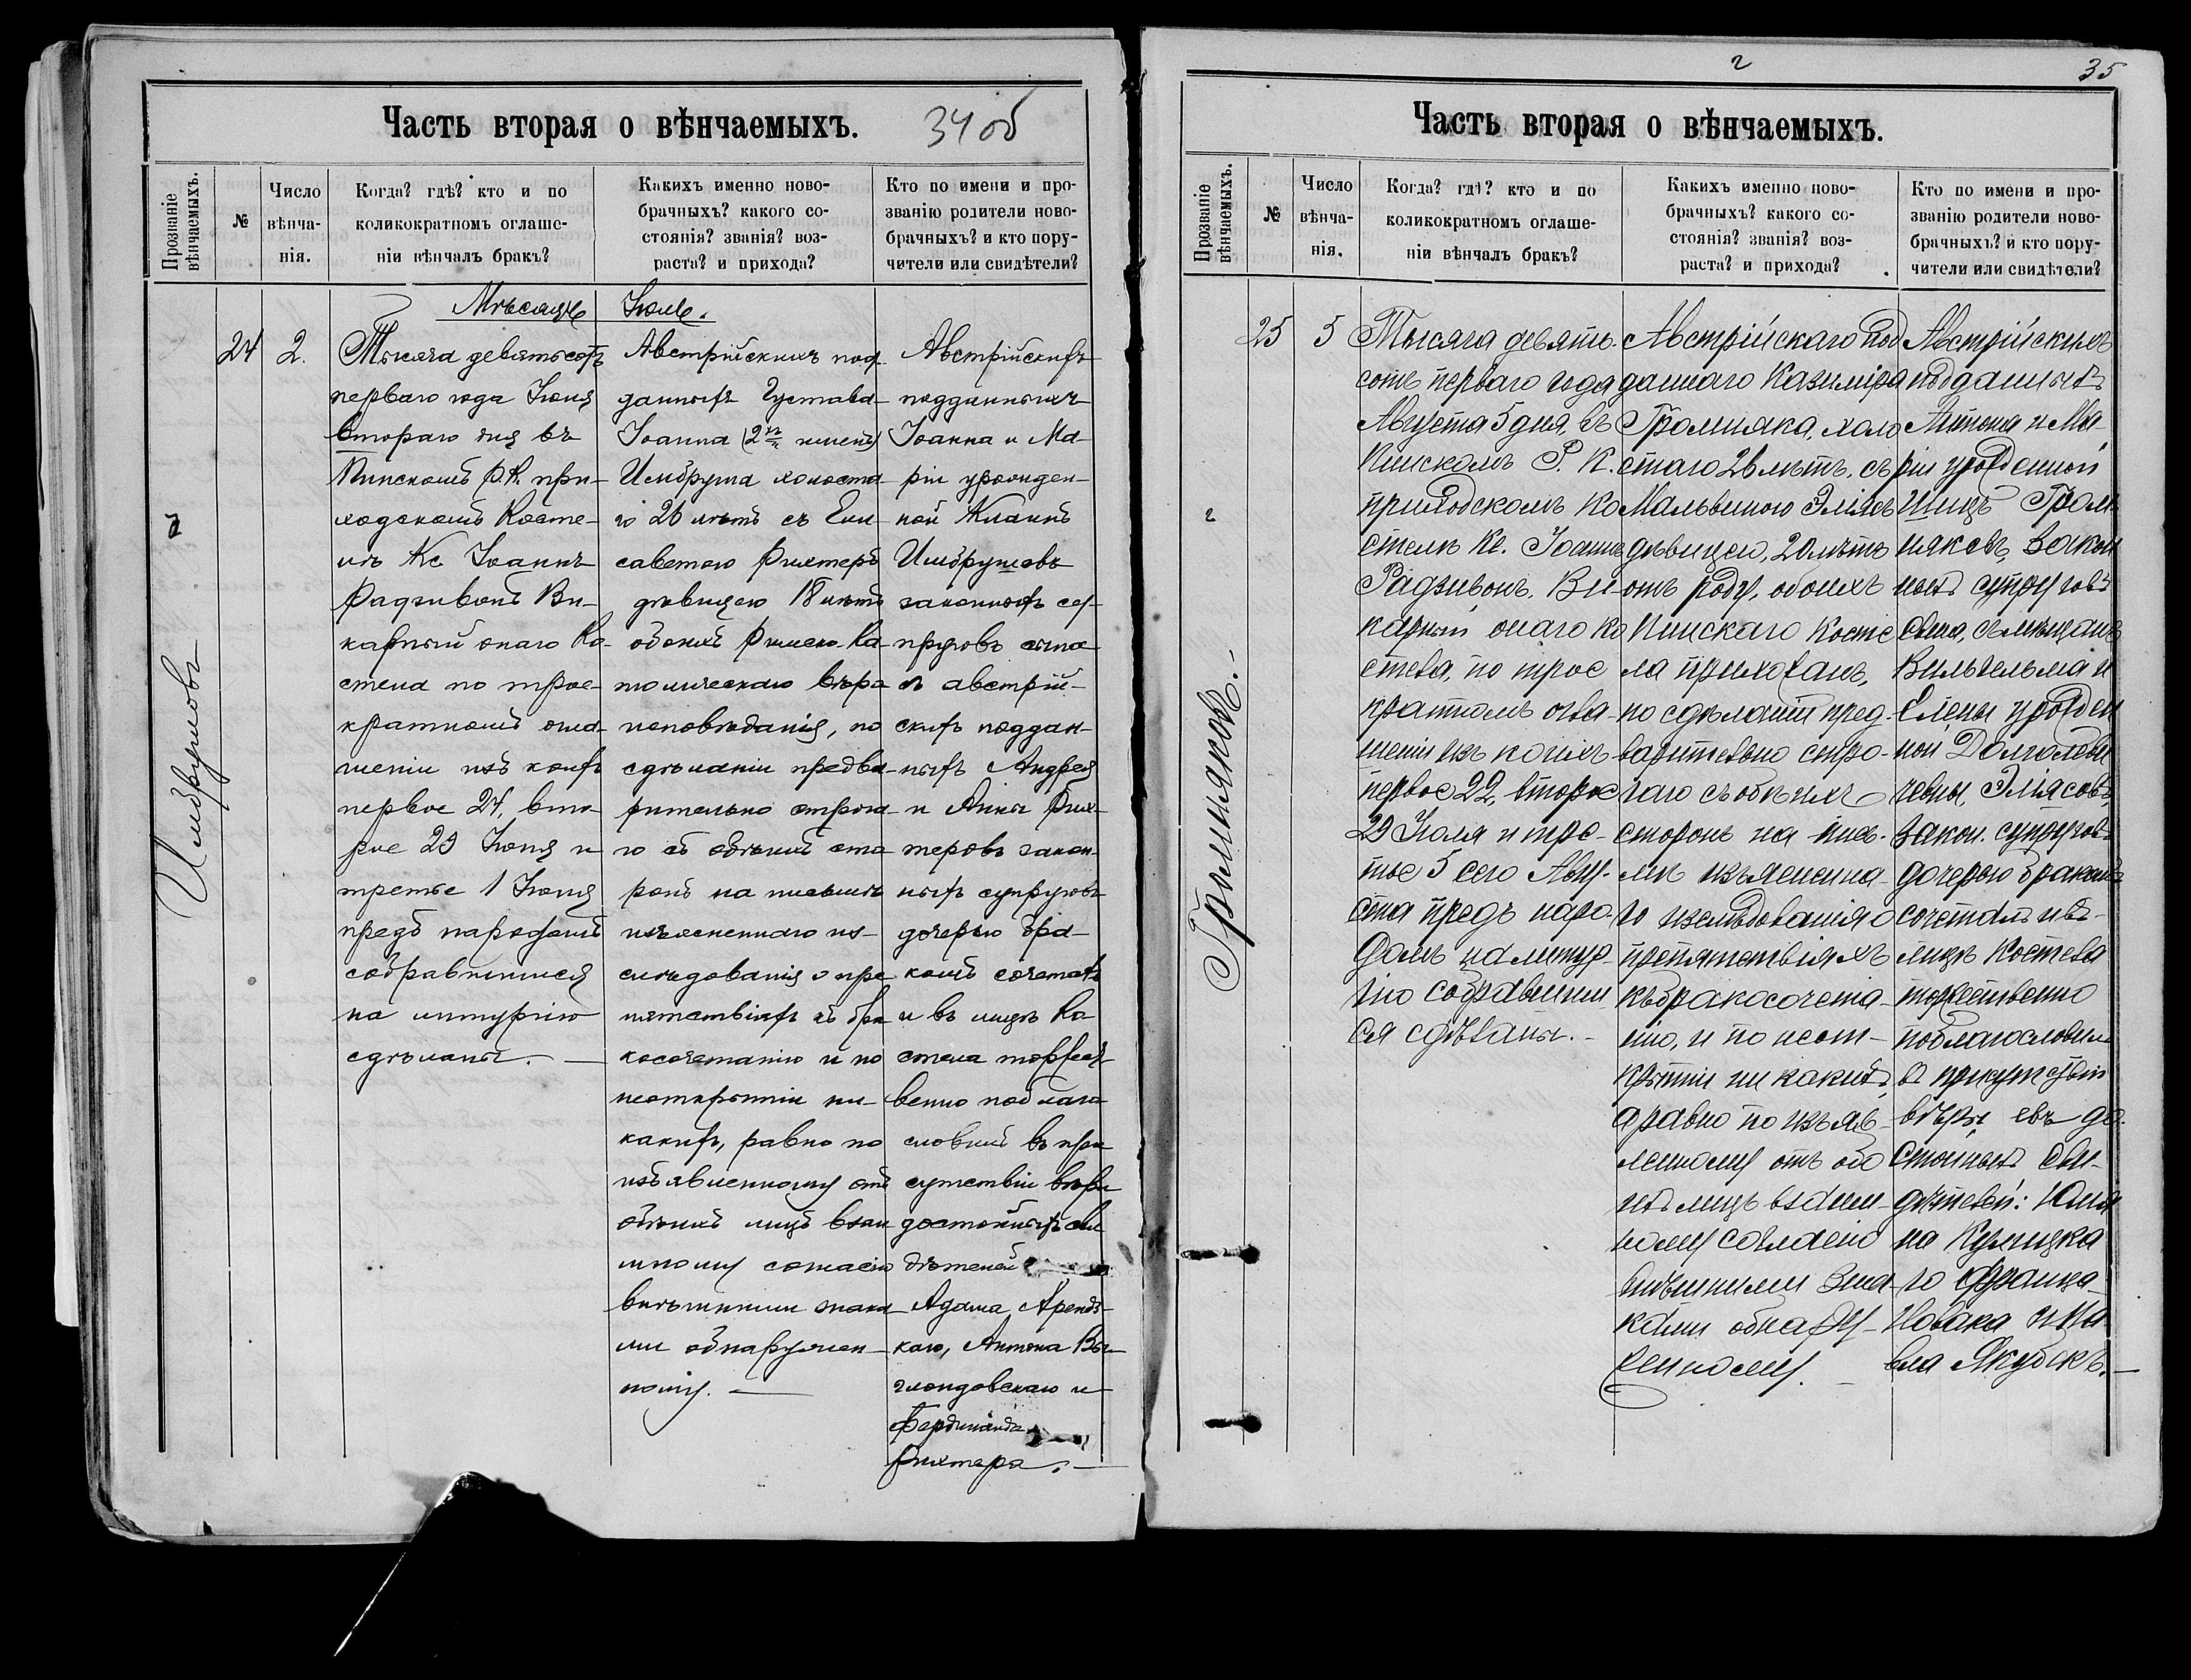 Часть вторая о вѣнчаемыхъ.
34 об
Прозваніе вѣнчаемыхъ.
№
Число вѣнча-нія.
Когда? гдѣ? кто и по
коликократномъ оглаше-
ніи вѣнчалъ бракъ?
Какихъ именно ново-
брачныхъ? какого со-
стоянія? званія? воз-
раста? и прихода?
Кто по имени и про-
званію родители ново-
брачныхъ? и кто пору-
чители или свидѣтели?
Мѣсяцъ Іюль.
24
2.
Тысяча девятьсотъ
перваго года Іюля
втораго дня въ
Пинскомъ Р. К. при-
ходскомъ Косте-
лѣ Кс Іоаннъ
Радзивонъ Ви-
карный онаго Ко-
стела по трое-
кратномъ огла-
шеніи изъ коихъ
первое 24, вто-
рое 29 Іюня и
третье 1 Іюля
предъ народомъ
собравшимся
на литургію
сдѣланы.
Австрійскихъ под-
данныхъ Густава-
Іоанна (2хъ именъ)
Имбруша холоста-
го 26 лѣтъ съ Ели-
саветою Рихтеръ
дѣвицею 18 лѣтъ
обоихъ Римско-Ка-
толическаго вѣро-
исповѣданія, по
сдѣланіи предва-
рительно строга-
го съ обѣихъ сто-
ронъ на письмѣ
изъясненнаго из-
слѣдованія о пре-
пятствіяхъ къ бра-
косочетанію и по
неоткрытіи ни-
какихъ, равно по
изъявленному отъ
обѣихъ лицъ взаи-
мному согласію
внѣшними знака-
ми обнаружен-
ному.
Австрійскихъ
подданныхъ
Іоанна и Ма-
ріи урожден-
ной Кланнъ
Имбрушовъ
законныхъ су-
пруговъ сына
съ австрій-
скихъ поддан-
ныхъ Андрея
и Анны Рих-
теровъ закон-
ныхъ супруговъ
дочерью бра-
комъ сочеталъ
и въ лицѣ Ко-
стела торжест-
венно поблаго-
словилъ въ при-
сутствіи вѣры
достойныхъ сви
дѣтелей
Адама Арендз-
каго, Антона Вы-
глондовскаго и
Фердинанда
Рихтера.
Имбрушовъ
2
35
Часть вторая о вѣнчаемыхъ.
Прозваніе вѣнчаемыхъ.
№
Число вѣнча-нія.
Когда? гдѣ? кто и по
коликократномъ оглаше-
ніи вѣнчалъ бракъ?
Какихъ именно ново-
брачныхъ? какого со-
стоянія? званія? воз-
раста? и прихода?
Кто по имени и про-
званію родители ново-
брачныхъ? и кто пору-
чители или свидѣтели?
25
5
Тысяча девять-
сотъ перваго года
Августа 5 дня, въ
Пинскомъ Р. К.
приходскомъ Ко
стелѣ Кс. Іоаннъ
Радзивонъ, Ви-
карный онаго Ко
стела, по трое
кратномъ огла-
шеніи изъ коихъ
первое 22, второе
29 Іюля и тре-
тье 5 сего Авгу-
ста предъ наро-
домъ на литур-
гію собравшим
ся сдѣланы.
Австрійскаго под
даннаго Казиміра
Громняка, холо
стаго 26 лѣтъ, съ
Мальвиною Эліясъ
дѣвицею, 20 лѣтъ
отъ роду, обоихъ
Пинскаго Косте
ла прихожанъ,
по сдѣланіи пред-
варительно стро-
гаго съ обѣихъ
сторонъ на пись-
мѣ изъясненна-
го изслѣдованія о
препятствіяхъ
къ бракосочета-
нію, и по неот-
крытіи никакихъ,
а равно по изъяв-
ленному отъ обо
ихъ лицъ взаим-
ному согласію
внѣшними зна-
ками обнару-
женному.
Австрійскихъ
подданныхъ
Антона и Ма-
ріи урожденной
Шицъ Гром-
няковъ, закон
ныхъ супруговъ
сына, съ мѣщанъ
Вильгельма и
Елены урожден
ной Долголеви
чевны, Эліясовъ,
закон. супруговъ
дочерью бракомъ
сочеталъ и въ
лицѣ Костела
торжественно
поблагословилъ
въ присутствіи
вѣры евъ до-
стойныхъ сви-
дѣтелей: Юлі
на Кулицка
го Франца
Новака и Па
вла Якубекъ.
Громняковъ.